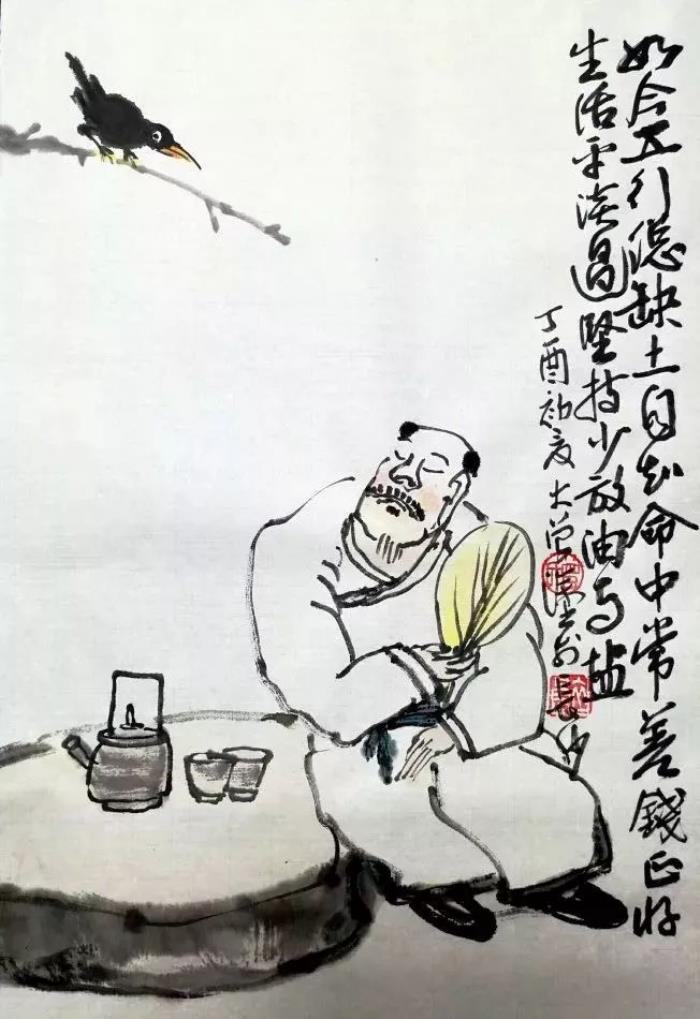 如今五行總缺土自知命中常差錢正好
生活平淡過堅持少放油与盐
丁酉初夏大曾於長沙